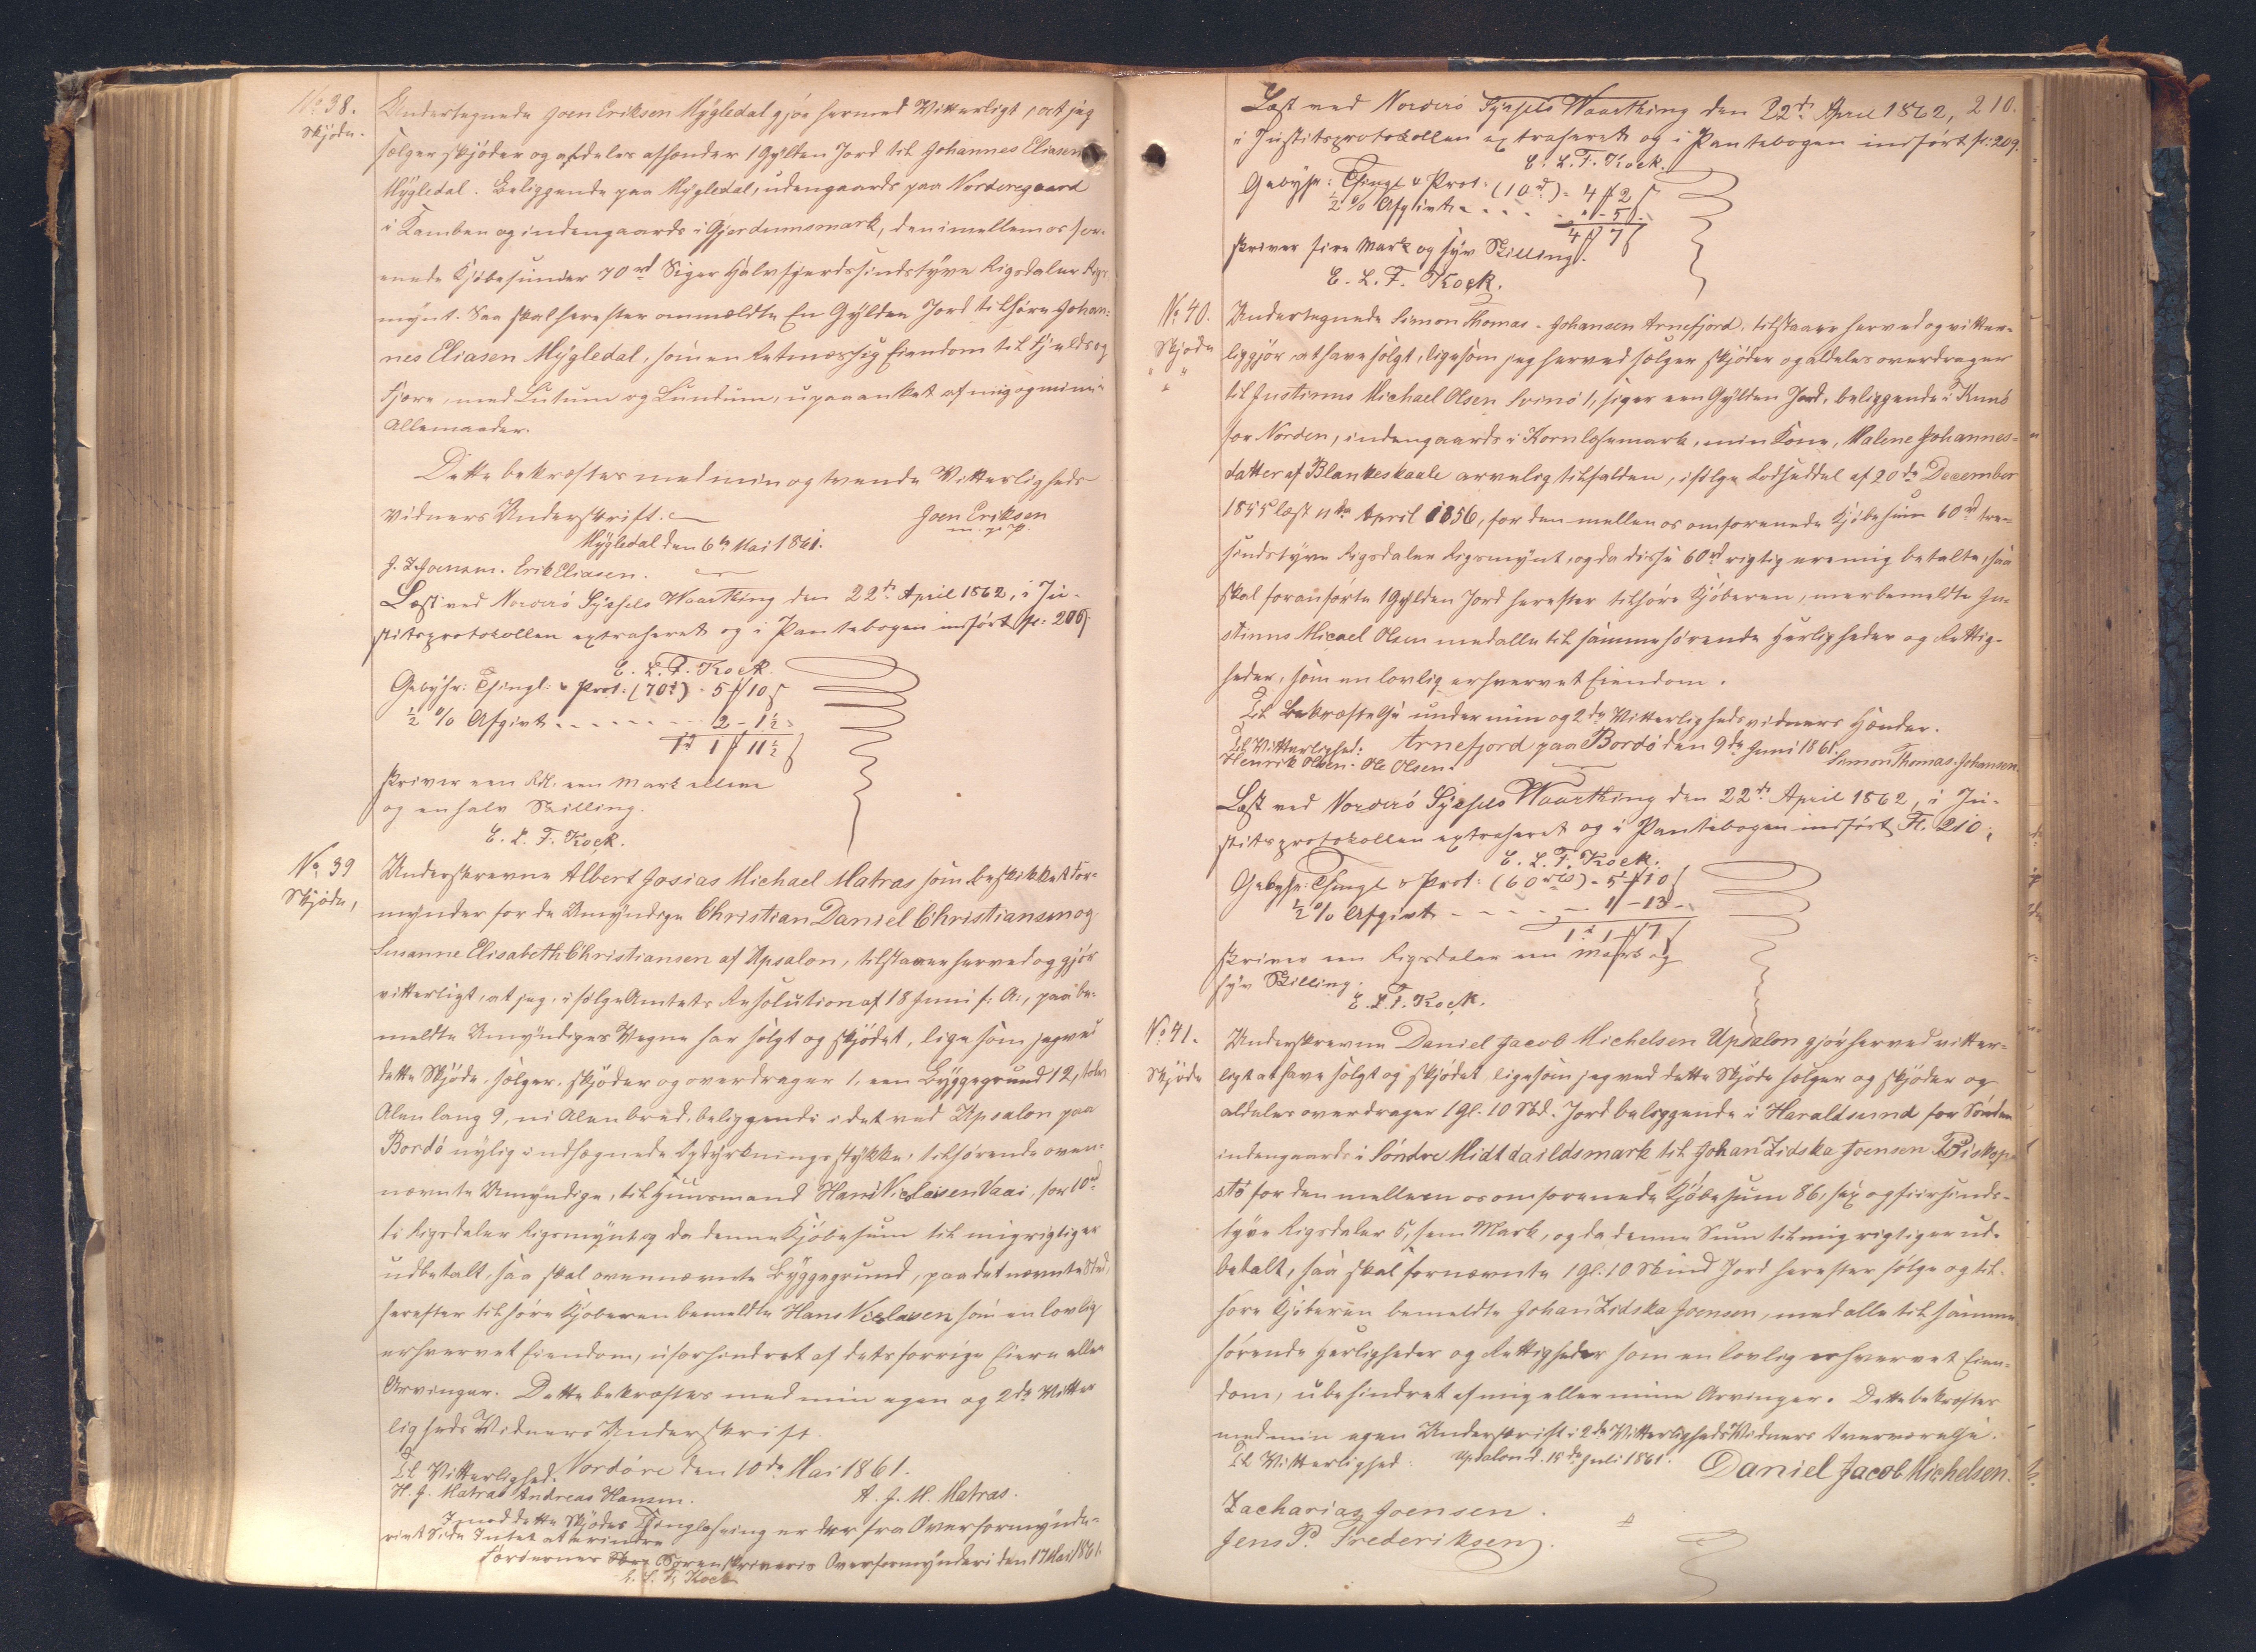 No 38.
Skjøde.
Undertegnede Joen Eriksen Mygledal gjør hermed Vitterligt, at jeg
sælger skjøder og afdeles afhænder 1 Gylden Jord til Johannes Eliasen
Mygledal. Beliggende paa Mygledal, udengaards paa Norderegaard
i Kamben og indengaards i Gjerdumsmark, den imellem os for-
enede Kjøbesum er 70 rd Siger Halvfjerdsindstyve Rigsdaler Rigs
mynt. Saa skal herefter ommældte En Gylden Jord tilhøre Johan-
nes Eliasen Mygledal, som en Retmæssig Eiendom til Fjelds og
Fjære, med Lutum og Lundum, upaaanket af mig og mine i
Allemaader.
Dette bekræftes med min og tvende Vitterligheds
vidners Underskrift.
Joen Eriksen
m. p. P.
Mygledal den 6te Mai 1861.
J. Z. Joensen. Erik Eliasen.
Læst ved Norderø Syssels Vaarthing den 22de April 1862, i Ju-
stitsprotokollen extraheret og i Pantebogen indført fo: 209.
E. L. F. Kock.
Gebyhr: Thingl: & Prot: (70rd) - 5 ℳ 10 ß
½ % Afgivt - - - - - 2 - 1½ -
1rd 1 ℳ 11½ ß
skriver een Rd. een Mark elleve
og en halv Skilling.
E. L. F. Kock.
No 39
Skjøde,
Underskrevne Albert Josias Michael Matras som beskikket For-
mynder for de Umyndige Christian Daniel Christiansen og
Susanne Elisabeth Christiansen af Upsalon, tilstaaer herved og gjør
vitterligt, at jeg, i følge Amtets Resolution af 18 Juni f. A., paa be-
meldte Umyndiges Vegne har solgt og skjødet, ligesom jeg ved
dette Skjøde, sælger, skjøder og overdrager 1, een Byggegrund 12, tolv
Alen lang 9, ni Alen bred, beliggende i det ved Upsalon paa
Bordø nylig indhegnede Opdyrkningsstykke, tilhørende oven-
nævnte Umyndige, til Huusmand Hans Niclasen Vaai, for 10rd
ti Rigsdaler Rigsmynt og da denne Kjøbesum til mig rigtig er
udbetalt, saa skal ovennævnte Byggegrund, paa det nævnte Sted,
herefter tilhøre Kjøberen bemeldte Hans Niclasen som en lovlig
erhvervet Eiendom, uforhindret af dets forrige Eiere eller
Arvinger. Dette bekræftes med min egen og 2de Vitter
ligheds Vidners Underskrift.
Til Vitterlighed. Nordøre den 10de Mai 1861.
H. J. Matras Andreas Hansen.
A. J. M. Matras.
Imod dette Skjødes Thinglæsning er der fra Overformynde-
riets Side Intet at erindre
Færøernes Sorenskriveris Overformynderi den 17 Mai 1861.
E. L. F. Kock
Læst ved Norderø Syssels Vaarthing den 22de April 1862, 210.
i Justitsprotokollen extraheret og i Pantebogen indført fo: 209.
E. L. F. Kock.
Gebyhr: Thingl & Prot: (10rd) - 4 ℳ 2 ß
½ % Afgivt - - - - " - 5 ß -
4 ℳ 7 ß
skriver fire Mark og syv Skilling.
E. L. F. Kock.
No 40.
Skjøde
Undertegnede Simon Thomas Johansen Arnefjord, tilstaaer herved og vitter-
liggjør, at have solgt, ligesom jeg herved sælger skjøder og aldeles overdrager
til Justinus Michael Olsen Svinø 1, siger een Gylden Jord, beliggende i Kunø
for Norden, indengaards i Kornløsemark, min Kone, Malene Johannes-
datter af Blankeskaale arvelig tilfalden, ifølge Lodseddel af 20de December
1855 læst 11te April 1856, for den mellem os omforenede Kjøbesum 60rd tre-
sindstyve Rigsdaler Rigsmynt, og da disse 60rd rigtig ere mig betalte, saa
skal foranførte 1 Gylden Jord herefter tilhøre Kjøberen, merbemeldte Ju-
stinus Micael Olsen med alle til sammehørende Herligheder og Rettig-
heder, som en lovlig erhvervet Eiendom.
Til Bekræftelse under min og 2de Vitterlighedsvidners Hænder.
Til Vitterlighed: Arnefjord paa Bordø den 9de Juni 1861.
Henrik Olsen. Ole Olsen.
Simon Thomas Johansen.
Læst ved Norderø Syssels Vaarthing den 22de April 1862, i Ju-
stitsprotokollen extraheret og i Pantebogen indført Fo. 210.
E. L. F. Kock.
Gebyhr: Thingl & Prot: (60rd) - 5 ℳ 10 ß
½ % Afgivt - - - - - 1 - 13 -
1rd 1 ℳ 7 ß
skriver een Rigsdaler een Mark og
syv Skilling.
E. L. F. Kock.
No 41.
Skjøde
Underskrevne Daniel Jacob Michelsen Upsalon gjør herved vitter-
ligt at have solgt og skjødet ligesom jeg ved dette Skjøde sælger og skjøder og
aldeles overdrager 1 Gl. 10 Skd. Jord beliggende i Haraldsund for Sønden
indengaards i Søndre Midtdaildsmark til Johan Zidska Joensen Biskop-
stø for den mellem os omforenede Kjøbesum 86, sex og firsinds-
tyve Rigsdaler 5, fem Mark, og da denne Sum til mig rigtig er ud-
betalt, saa skal fornævnte 1 Gl. 10 Skind Jord herefter følge og til-
høre Kjøberen bemeldte Johan Zidska Joensen, med alle til samme
hørende Herligheder og Rettigheder som en lovlig erhvervet Eien-
dom, ubehindret af mig eller mine Arvinger. Dette bekræftes
med min egen Underskrift i 2de Vitterligheds Vidners Overværelse.
Til Vitterlighed: Upsalon d. 15de Juli 1861.
Daniel Jacob Michelsen.
Zacharias Joensen.
Jens P. Frederiksen.